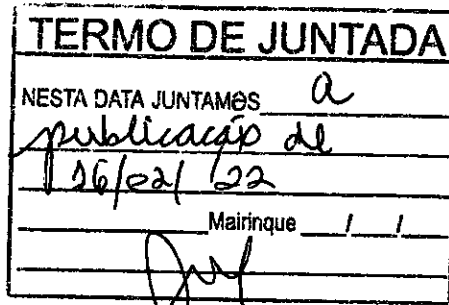 TERMO DE JUNTADA
NESTA DATA JUNTAMOS a
publicação de
16/02/22
Mairinque / /